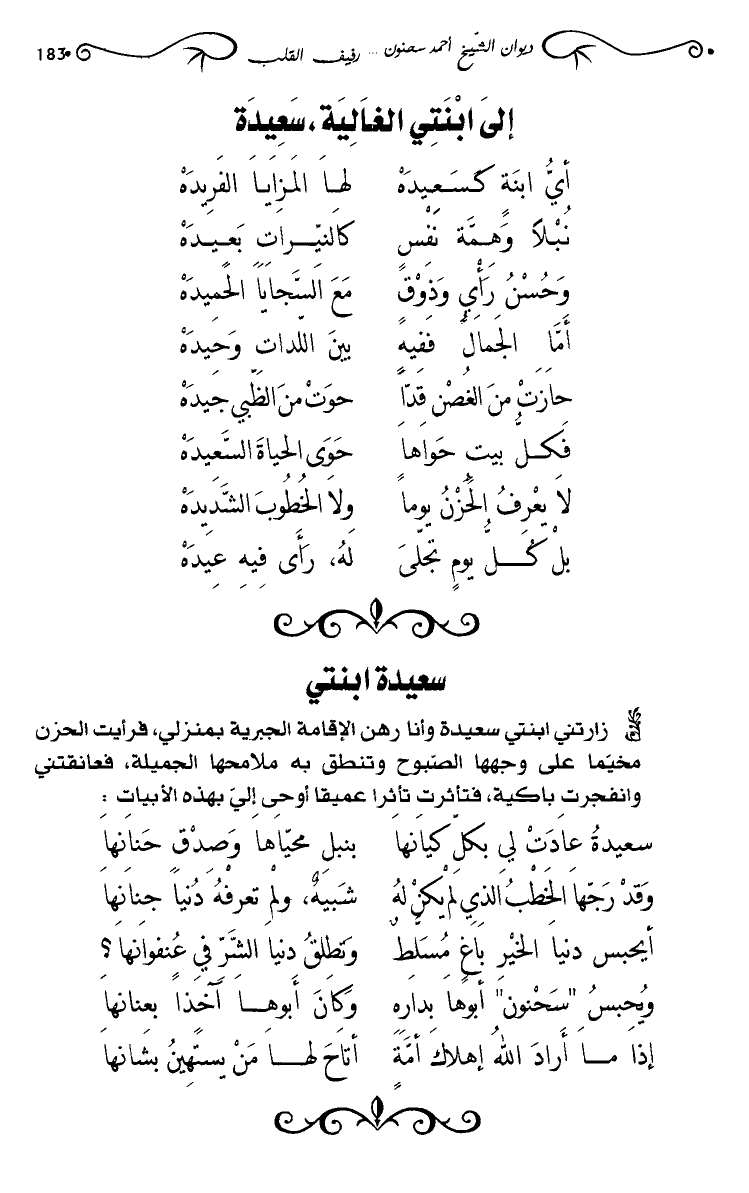 ديوان الشّيخ أحمد سحنون ... رفيف القلب 183
إلىَ ابْنَتِي الغَالِيَة، سَعِيدَة
أيُّ ابنَة كَسَعِيدَهْ لهـاَ المَزاياَ الفَريِدَهْ
نُبْلاً وَهـمَّة نَفْسٍ كالنيِّـراتِ بَعيـدَهْ
وَحُسْنُ رَأْيٍ وَذوْقٍ مَعَ السَّجاياَ الحَميِدَهْ
أمَّا الجَمالُ ففيهِ بينَ اللدِاتِ وَحيِدَهْ
حازتْ منَ الغُصْنِ قدّاً حوَتْ منَ الظَّبيِ جيدَهْ
فَكـلُّ بيتٍ حَواهاَ حَوَى الحياةَ السَّعيدَهْ
لاَ يعْرِفُ الحُزْنُ يوْماً ولاَ الخُطُوبَ الشَّديِدَهْ
بلْ كُـــلُّ يومٍ تجَلىَّ لهُ، رَأَى فيِهِ عِيدَهْ
سعيدة ابنتي
زارتني ابنتي سعيدة وأنا رهن الإقامة الجبرية بمنزلي، فرأيت الحزن
مخيّما على وجهها الصّبوح وتنطق به ملامحها الجميلة، فعانقتني
وانفجرت باكية، فتأثرت تأثرا عميقا أوحى إليّ بهذه الأبيات :
سعيدةُ عادَتْ لي بكلِّ كَيانهاَ بنبلِ محيّاهاَ وَصدْقِ حَنانهاَ
وَقدْ رَجّها الخَطْبُ الذي لمْ يكنْ لهُ شَبيهٌ، ولمْ تعرفْهُ دُنياَ جنانهاَ
أيحبس دنياَ الخيْرِ باغٍ مُسَلَّطٌ وَتطلقُ دنياَ الشَّرِّ فيِ عُنفوانهاَ ؟
ويُحبسُ "سَحْنون" أبوهاَ بدارِهِ وَكانَ أبوهـــا آخذاً بعنانهاَ
إذا مـــا أرادَ اللهُ إهلاكَ أمَّةٍ أتاحَ لهـــا مَنْ يستَهينُ بشانهاَ